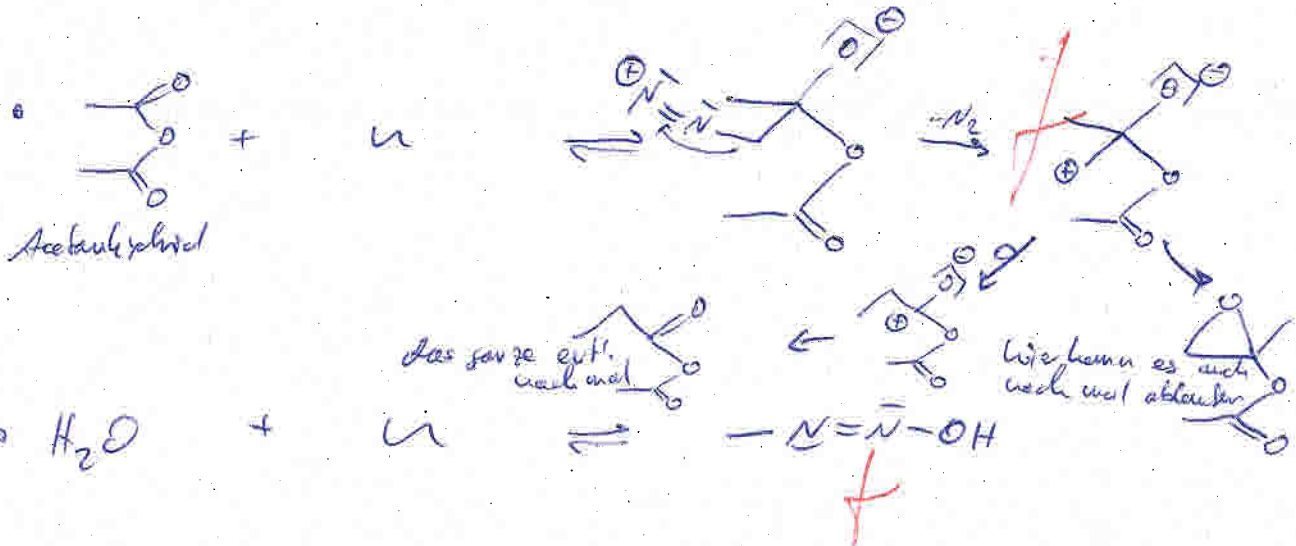 +
-N₂
Acetanhydrid
das ganze evtl.
noch mal
hier kann es auch
noch mal ablaufen
H₂O + ⇌ — N=N—OH